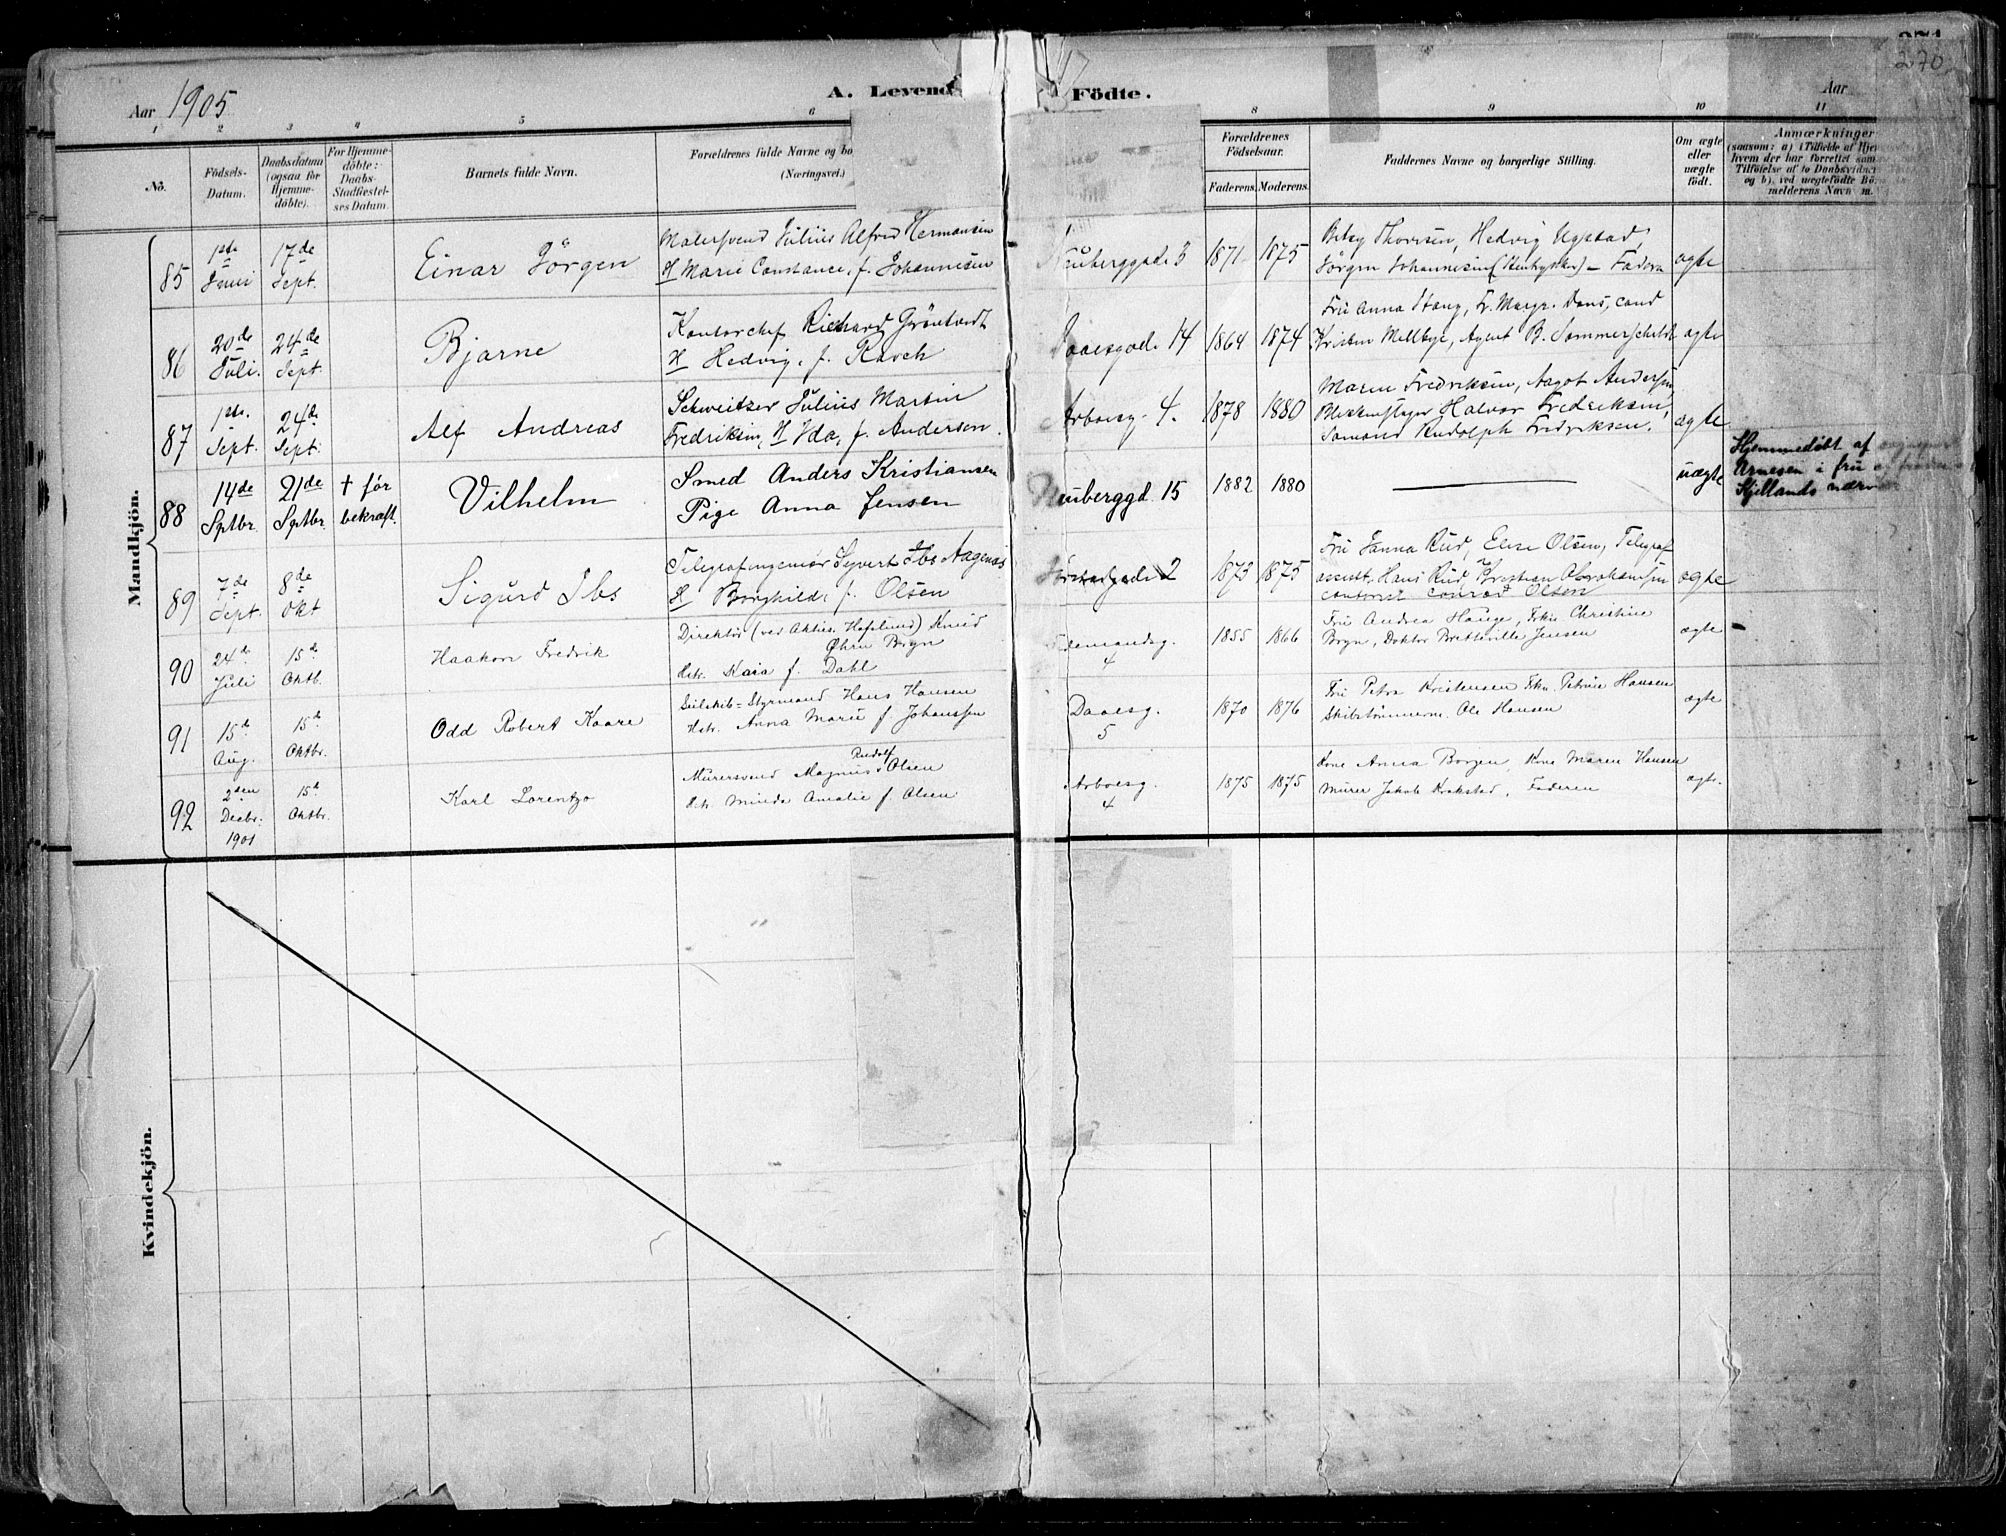 270
Aar 1905
A. Levend
Födte.
Aar
1 2 3 4 5 6 8 9 10 11
No.
Födsels-
Datum.
Daabsdatum
(ogsaa for
Hjemme-
döbte).
For Hjemme-
döbte:
Daabs-
Stadfæstel-
ses Datum.
Barnets fulde Navn.
Forældrenes fulde Navne og bo
(Næringsvei.)
Forældrenes
Födselsaar.
Faderens. Moderens.
Faddernes Navne og borgerlige Stilling.
Om ægte
eller
uægte
födt.
Anmærkninger
(saasom: a) i Tilfælde af Hje
hvem der har forrettet sam
Tilföielse af to Daabsvidne
og b), ved uægtefödte Bö
melderens Navn m.
Mandkjön.
85
1ste
Juni
17de
Sept.
Einar Jörgen
Malersvend Julius Alfred Hermansen
H Marie Constance, f. Johannesen
Neuberggade 3
1871
1875
Betsy Thoresen, Hedvig
Jörgen Johannesen – Fadern
ægte
86
20de
Juli.
24de
Sept.
Bjarne
Kontorchef Richard Gröntvedt
H Hedvig, f. Ravch
14
1864
1874
Fru Anna Stang, Fr. Margr. Dons, cand
Kristen Mellbye, Agent B. Sommerscheldt
ægte
87
1ste.
Sept.
24de
Sept.
Alf Andreas
Schweitzer Julius Martin
Fredriksen, H Ida, f. Andersen.
Arboesg. 4.
1878
1880
Maren Fredriksen, Aagot Andersen,
Halvor Fredriksen,
Rudolph Fredriksen.
ægte
88
14de
Sptbr.
21de
Sptbr.
† før
bekræft.
Vilhelm
Smed Anders Kristiansen
Pige Anna Jensen
Neuberggd. 15
1882
1880
uægte
Hjemmedöbt af
Arnesen i fru
Kjellands nærv
89
7de
Sept.
8de
Okt
Sigurd Ibs
Telegrafingeniør Syvert Ibs Aagenæs
H Borghild, f. Olsen
2
1873
1875
Fru Hanna Rud, Elise Olsen, Telegraf
assist. Hans Rud, Kristian Abrahamsen
contorist Conrad Olsen
ægte
90
24de
Juli
15de
Oktb.
Haakon Fredrik
Direktör (ved Akties. Hafslund) Knud
Öhrn Bryn
Hstr. Kaia f. Dahl
4
1855
1866
Fru Andrea Hauge, Frkn Christine
Bryn, Doktor Bretteville Jensen
ægte
91
15de
Aug.
15de
Oktbr.
Odd Robert Kaare
Seilskib=Styrmand Hans Hansen
Hstr. Anna Marie f. Johanssen
Daaesg.
5
1870
1876
Fru Petra Kristensen Frkn. Petrine Hansen
Skibstømmerm. Ole Hansen
ægte
92
2den
Decbr.
1901
15de
Oktbr.
Karl Lorentzo
Rudolf
Murersvend Magnus Olsen
Hstr. Minda Amalie f. Olsen
Arboesg.
4
1875
1875
Kone Anna Borgen, Kone Maren Hansen
Murer Jakob Krokstad, Faderen
ægte.
Kvindekjön.